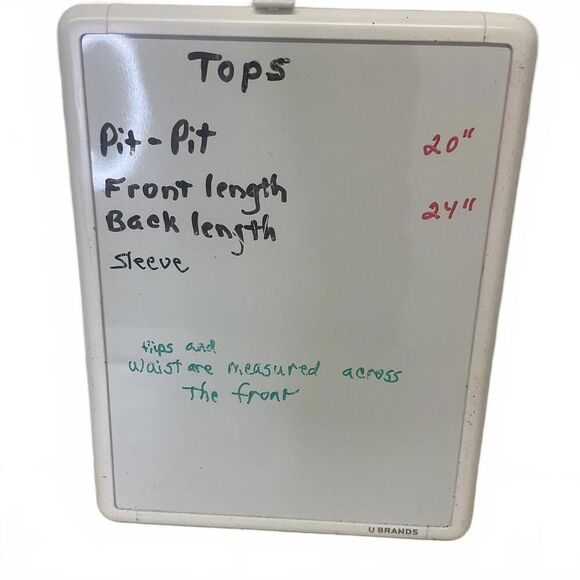 Tops
Pit-Pit 20"
Front length
Back length 24"
Sleeve
Hips and
Waist are measured across
The front
U BRANDS